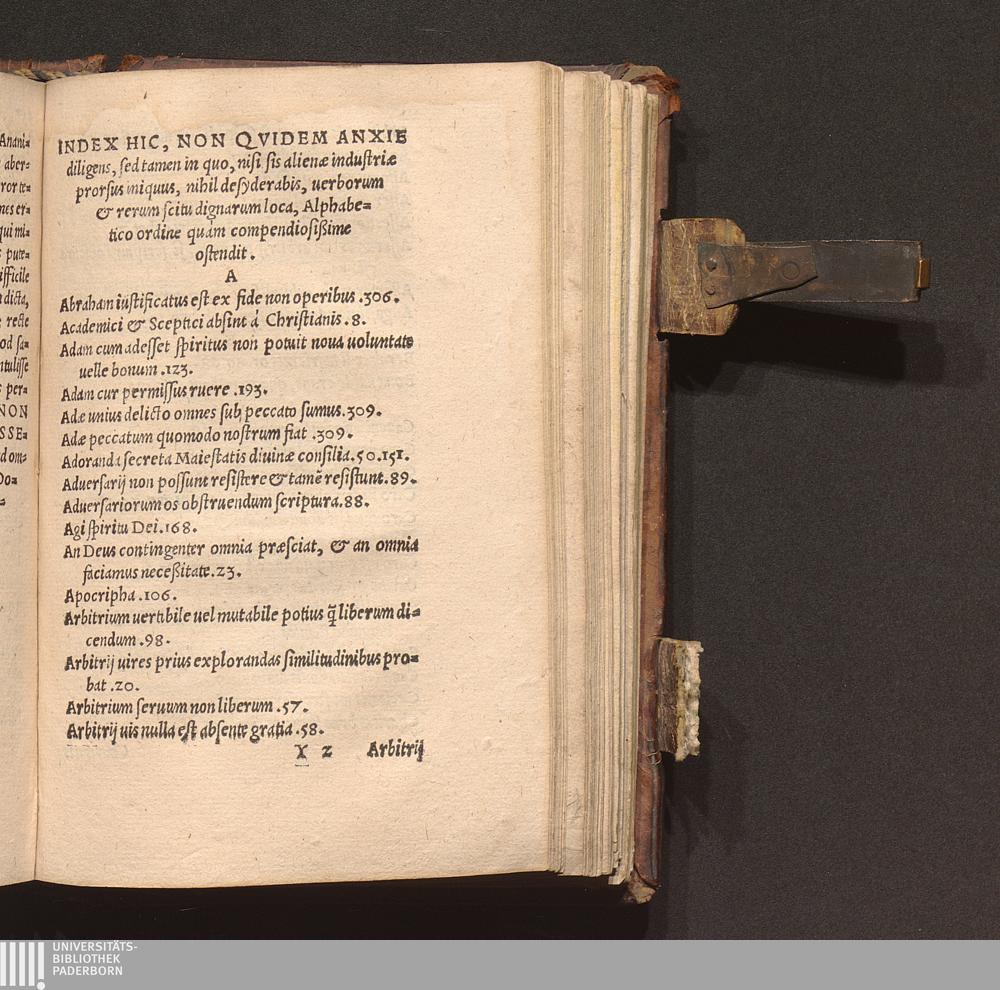 Anani=
aber=
ror te=
nes er=
qui mi=
pute=
ifficile
dicta,
recte
od sa=
ntulisse
per=
NON
SSE=
d om=
Do=
INDEX HIC, NON QVIDEM ANXIE
diligens, sed tamen in quo, nisi sis alienæ industriæ
prorsus iniquus, nihil desyderabis, uerborum
& rerum scitu dignarum loca, Alphabe=
tico ordine quàm compendiosißime
ostendit.
A
Abraham iustificatus est ex fide non operibus .306.
Academici & Sceptici absint à Christianis .8.
Adam cum adesset spiritus non potuit noua uoluntate
uelle bonum .123.
Adam cur permissus ruere .193.
Adæ unius delicto omnes sub peccato sumus.309.
Adæ peccatum quomodo nostrum fiat .309.
Adoranda secreta Maiestatis diuinæ consilia.50.151.
Aduersarij non possunt resistere & tamẽ resistunt.89.
Aduersariorum os obstruendum scriptura.88.
Agi spiritu Dei.168.
An Deus contingenter omnia præsciat, & an omnia
faciamus neceßitate.23.
Apocripha .106.
Arbitrium uertibile uel mutabile potius q̃ liberum di=
cendum .98.
Arbitrij uires prius explorandas similitudinibus pro=
bat .20.
Arbitrium seruum non liberum .57.
Arbitrij uis nulla est absente gratia .58.
Y 2 Arbitrij
UNIVERSITÄTS-
BIBLIOTHEK
PADERBORN